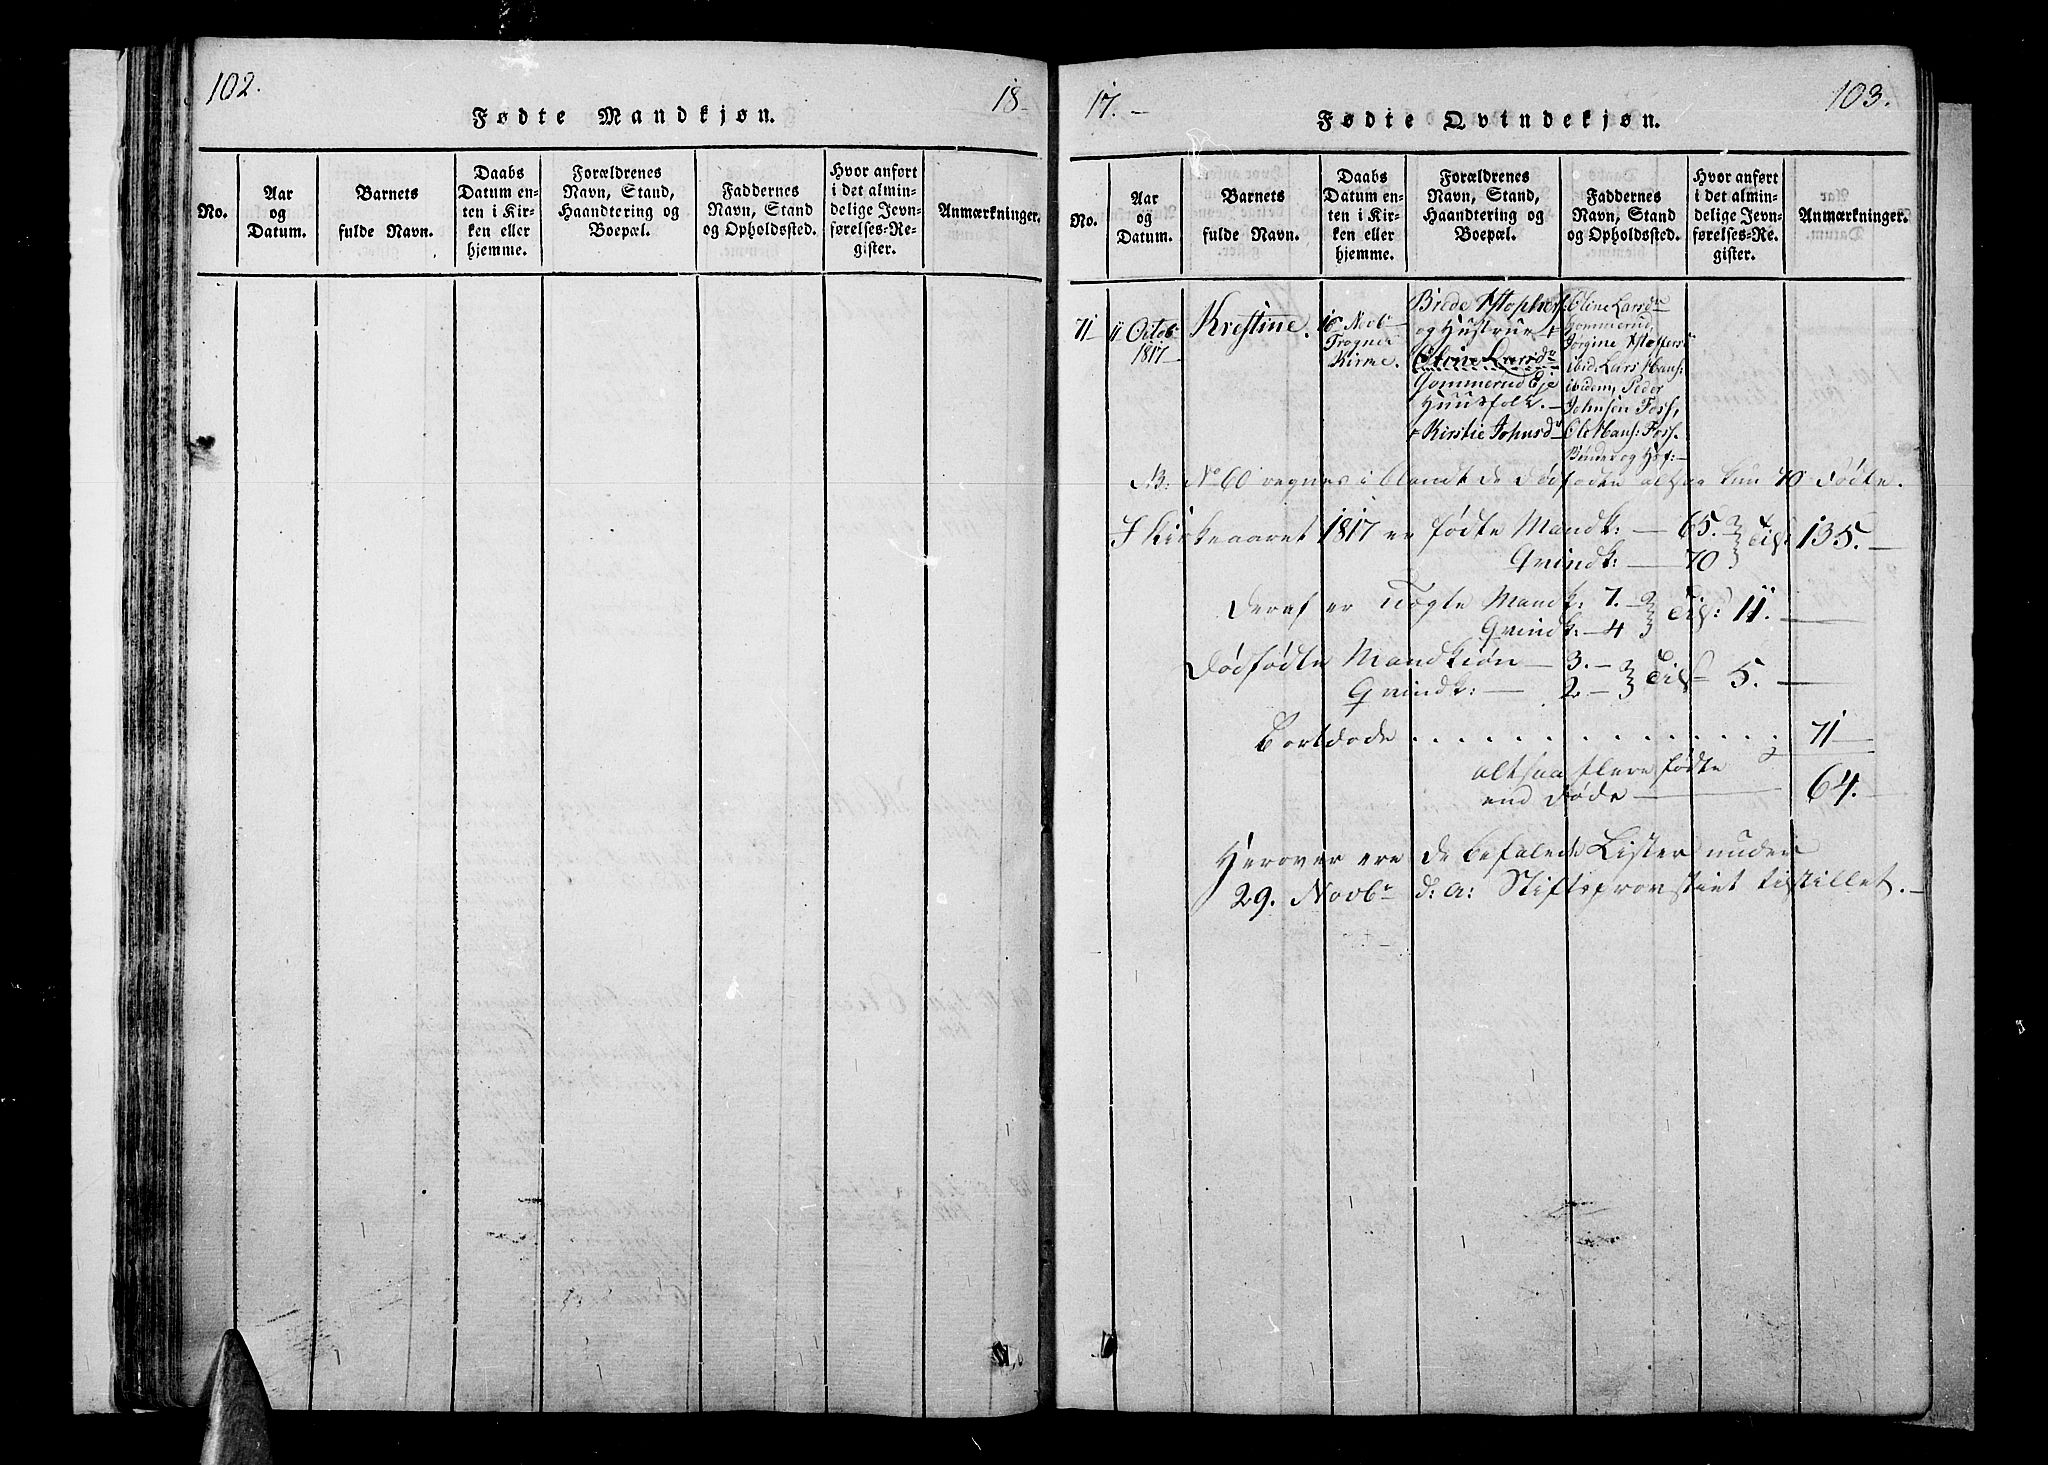 102.
18-
Fødte Mandkjøn.
No.
Aar
og
Datum.
Barnets
fulde Navn.
Daabs
Datum en-
ten i Kir-
ken eller
hjemme.
Forældrenes
Navn, Stand,
Haandtering og
Boepæl.
Faddernes
Navn, Stand
og Opholdssted.
Hvor anført
i det almin-
delige Jevn-
førelses-Re-
gister.
Anmærkninger.
17.-
103.
Fødte Qvindekjøn.
No.
Aar
og
Datum.
Barnets
fulde Navn.
Daabs
Datum en-
ten i Kir-
ken eller
hjemme.
Forældrenes
Navn, Stand,
Haandtering og
Boepæl.
Faddernes
Navn, Stand
og Opholdssted.
Hvor anført
i det almin-
delige Jevn-
førelses-Re-
gister.
Anmærkninger.
71
11 Octob
1817
Krestine.
16 Novb
Trogner
Kirke.
Brede Xstophers:
og Hustrue +
Oline Larsdr
Gommerud Eje
Huusfolk.-
+ Kirstie Johnsdr
Oline Larsdr
Gommerud,
Jørgine
ibid Lars Hans:
ibidem, Peder
Johnsen Foss,
Ole Hans: Foss.
Bønder og Hsf:-
NB: No 60 regnes i blandt de Dødfødte altsaa kun 70 Fødte.
I Kirkeaaret 1817 er fødte Mandk: - 65. Tils: 135.-
Qvindk: - 70
Deraf er Uægte Mandk: 7.- Tils: 11.
Qvindk: - 4
Dødfødte Mandkiøn - 3.- Tils 5.
Qvindk: - 2 -
Bortdøde . . . . . . . . . . . . . . . 71
altsaa flere fødte
end Døde - 64.
Herover ere de befalede Lister under
29. Novbr d: a: Stiftsprovstiet tilstillet.-